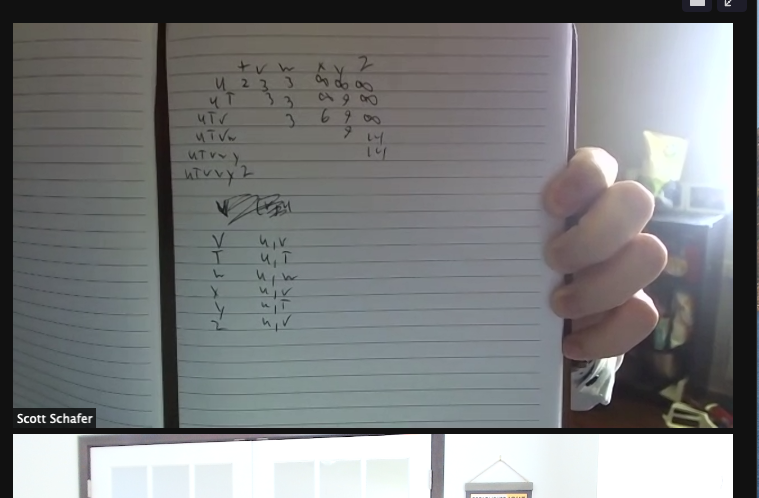 t v w x y z
u 2 3 3 ∞ ∞ ∞
uT 3 3 ∞ 9 ∞
uTv 3 6 9 ∞
uTvw 9 14
uTvwy 14
uTvwyz
V u,v
T u,T
w u,w
x u,v
y u,T
z u,v
Scott Schafer